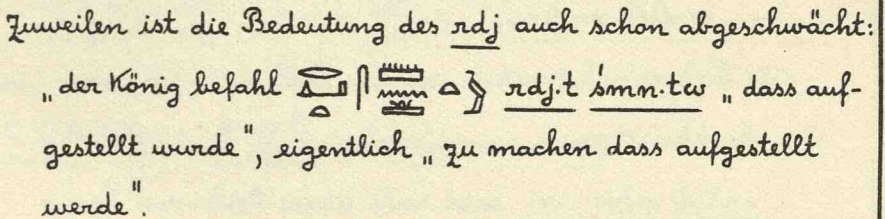 Zuweilen ist die Bedeutung des rdj auch schon abgeschwächt:
„der König befahl 𓂋𓂞𓏏𓋴𓏠𓈖𓍊𓏏𓅱 rdj·t śmn·tw „dass auf-
gestellt wurde", eigentlich „zu machen dass aufgestellt
werde".